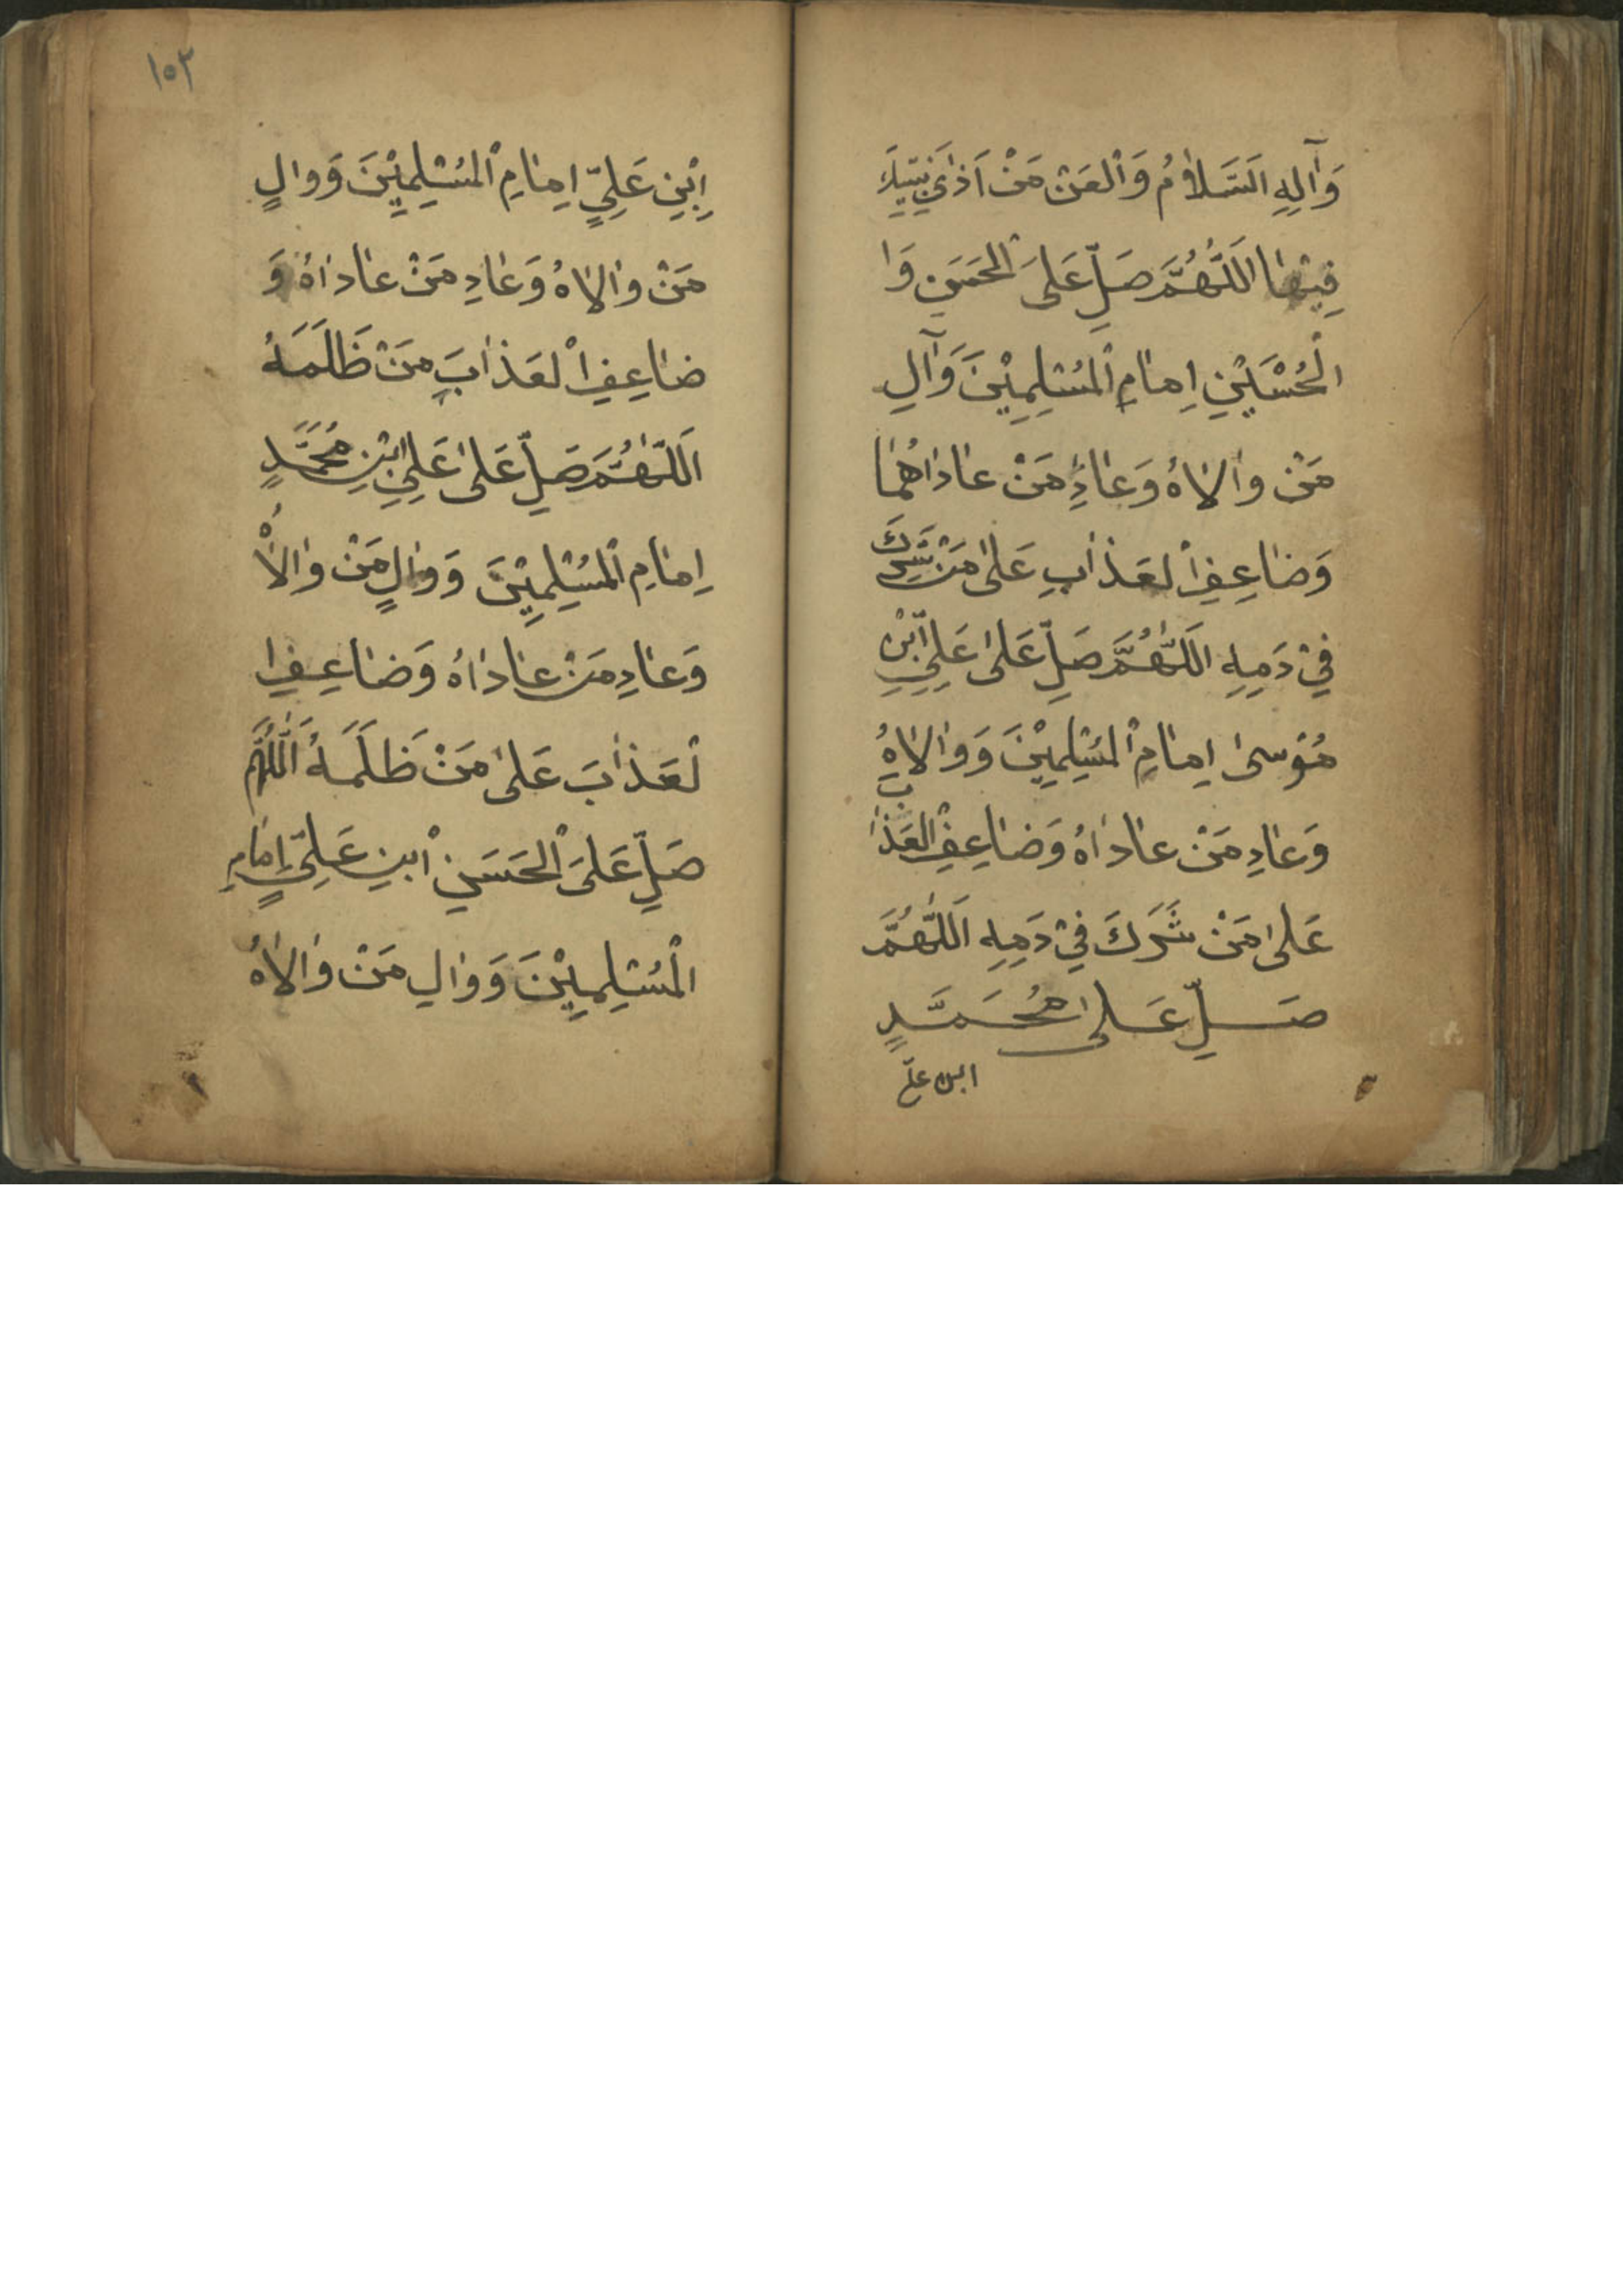 وَآلِهِ السَّلَامُ وَالْعَنْ مَنْ اَذٰى نَبِيَّكَ
فِيْهٰا اَللّٰهُمَّ صَلِّ عَلَى الْحَسَنِ وَا
لْحُسَيْنِ اِمٰامِ الْمُسْلِمِيْنَ وَآلِ
مَنْ وٰالاٰهُ وَعٰادِ مَنْ عٰادٰاهُمٰا
وَضٰاعِفِ الْعَذٰابِ عَلىٰ مَنْ شَرِكَ
فِيْ دَمِهِ اَللّٰهُمَّ صَلِّ عَلىٰ عَلِيِّ ابْنِ
مُوْسىٰ اِمٰامِ الْمُسْلِمِيْنَ وَوٰالاٰهُ
وَعٰادِ مَنْ عٰادٰاهُ وَضٰاعِفِ الْعَذٰابَ
عَلىٰ مَنْ شَرَكَ فِيْ دَمِهِ اَللّٰهُمَّ
صَلِّ عَلىٰ مُحَمَّدٍ
ابن علي
١٥٣
اِبْنِ عَلِيٍّ اِمٰامِ الْمُسْلِمِيْنَ وَوٰالِ
مَنْ وٰالاٰهُ وَعٰادِ مَنْ عٰادٰاهُ وَ
ضٰاعِفِ الْعَذٰابَ مَنْ ظَلَمَهُ
اَللّٰهُمَّ صَلِّ عَلىٰ عَلِيِّ ابْنِ مُحَمَّدٍ
اِمٰامِ الْمُسْلِمِيْنَ وَوٰالِ مَنْ وٰالاٰهُ
وَعٰادِ مَنْ عٰادٰاهُ وَضٰاعِفِ ا
لْعَذٰابَ عَلىٰ مَنْ ظَلَمَهُ اَللّٰهُمَّ
صَلِّ عَلَى الْحَسَنِ ابْنِ عَلِيٍّ اِمٰامِ
الْمُسْلِمِيْنَ وَوٰالِ مَنْ وٰالاٰهُ